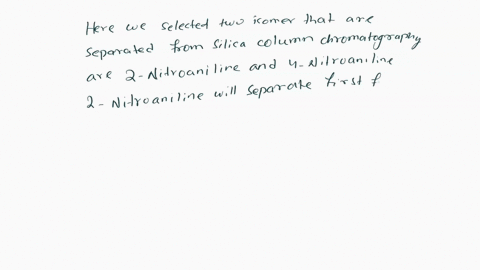 Here we selected two isomer that are
separated from silica column chromatography
are 2-Nitroaniline and 4-Nitroaniline
2-Nitroaniline will separate first f